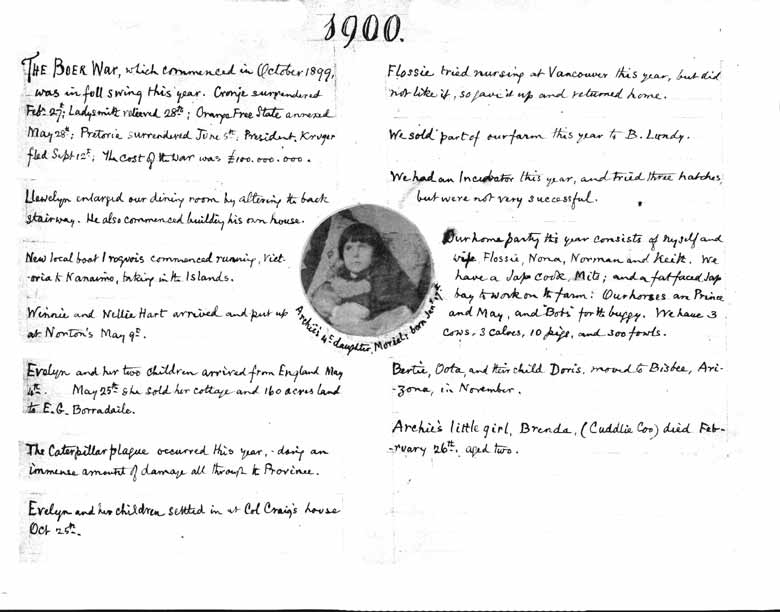 1900.
THE BOER WAR, which commenced in October 1899,
was in full swing this year. Cronje surrendered
Feb. 27th; Ladysmith relieved 28th; Orange Free State annexed
May 28th; Pretoria surrendered June 5th. President Kruger
fled Sept 12th; The cost of the war was £100.000.000.
Llewelyn enlarged our dining room by altering the back
stairway. He also commenced building his own house.
New local boat Iroquois commenced running, Vict-
oria to Nanaimo, taking in the Islands.
Winnie and Nellie Hart arrived and put up
at Norton's May 9th.
Evelyn and her two children arrived from England May
4th. May 25th she sold her cottage and 160 acres land
to E.G. Borradaile.
The Caterpillar plague occurred this year, doing an
immense amount of damage all through the Province.
Evelyn and her children settled in at Col Craig's house
Oct 25th.
Archie's 4th daughter, Moriel; born Jany
Flossie tried nursing at Vancouver this year, but did
not like it, so gave it up and returned home.
We sold part of our farm this year to B. Lundy.
We had an Incubator this year, and tried three hatches,
but were not very successful.
Our home party this year consists of myself and
wife, Flossie, Nora, Norman and Keith. We
have a Jap Cook, Mits; and a fat faced Jap
boy to work on the farm: Our horses are Prince
and May, and Bob for the buggy. We have 3
cows, 3 calves, 10 pigs, and 300 fowls.
Bertie, Oota, and their child Doris, moved to Bisbee, Ari-
-zona, in November.
Archie's little girl, Brenda, (Cuddlie Coo) died Feb-
-ruary 26th, aged two.